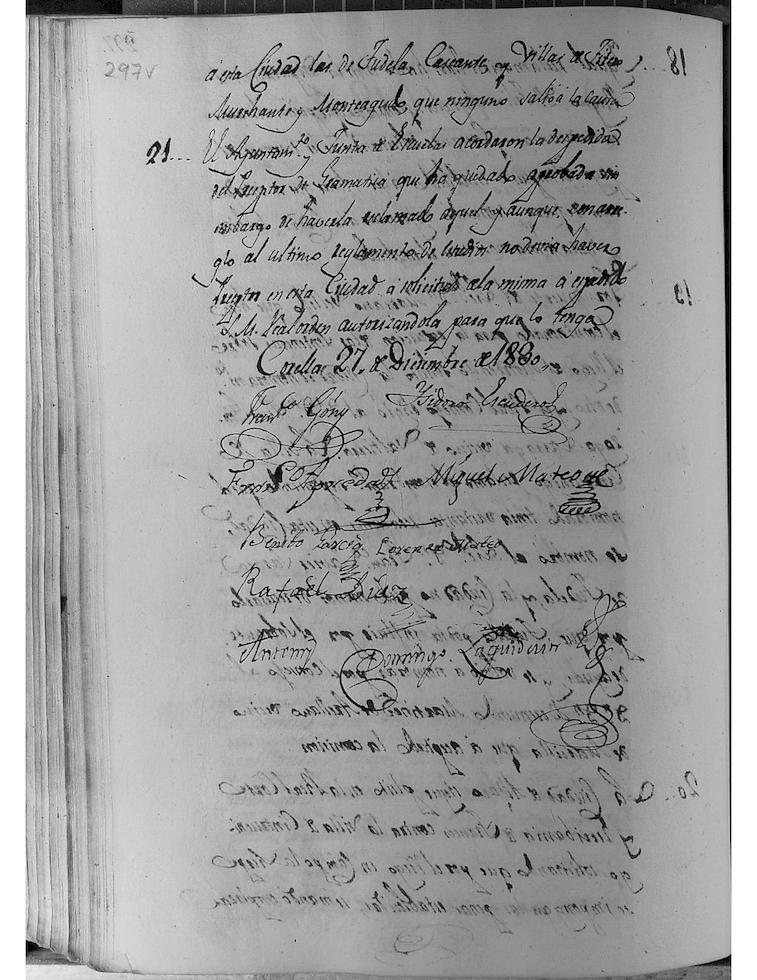 297v
á esta Ciudad las de Tudela, Cascante, y Villas de Fitero
Murchante y Monteagudo, que ninguno saltó á la causa
21... El Ayuntamto. y Junta de Escuelas acordaron la despedida
del Preceptor de Gramatica que ha quedado aprobada sin
embargo de haverla reclamado aquel y aunque, con arre-
glo al ultimo reglamento de estudios no devia haver
Preceptor en esta Ciudad a solicitud de la misma á expedido
S.M. Real orden autorizandola para que lo tenga
Corella 27, de Diciembre de 1830,
Franco. Góñy Ysidoro Escudero
Miguel Mateo
Benito Garcia Lorenzo Mateo
Rafaél Díaz
Antemi
Domingo Laquidain